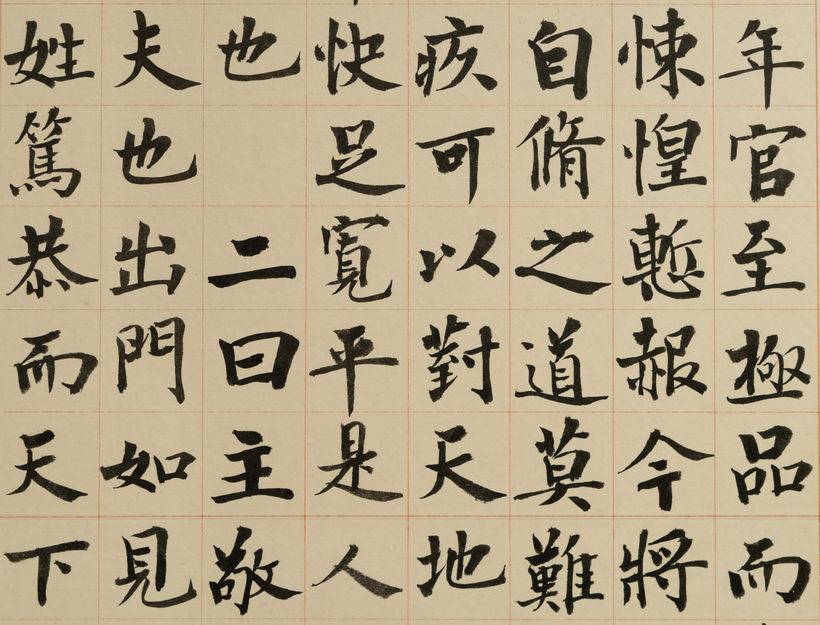 年官至極品而
悚惶慙赧今將
自脩之道莫難
疚可以對天地
快足寬平是人
也 二曰主敬
夫也出門如見
姓篤恭而天下